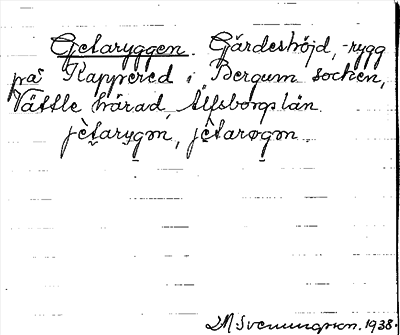 Getaryggen. Gärdeshöjd, -rygg
på Kappered i Bergum socken,
Vättle härad, Älfsborgs län.
jètarygən, jètarøgən
M Svenungsson. 1938.